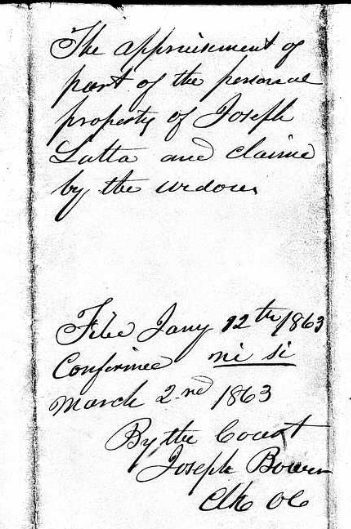 The appraisement of
part of the personal
property of Joseph
Latta and claimed
by the widow
File Jany 12th 1863
Confirmed ni si
March 2nd 1863
By the Court
Joseph Bowers
Clk OC